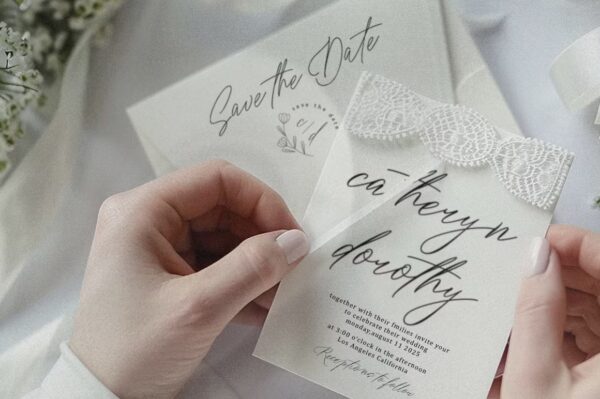 Save the Date
save the date
c/d
cātheryn
dorothy
together with their fmilies invite your
to celebrate their wedding
monday,august 11 2025
at 3:00 o'clock in the afternoon
Los Angeles California
Receptions to follow